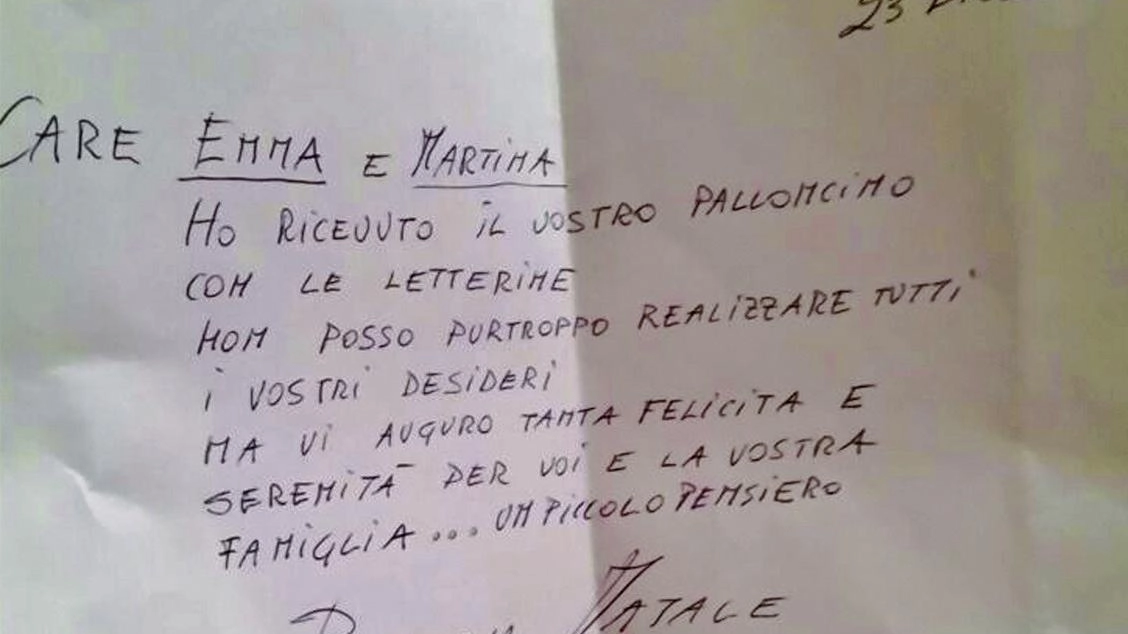 23
CARE EMMA E MARTINA
HO RICEVUTO IL VOSTRO PALLONCINO
CON LE LETTERINE
NON POSSO PURTROPPO REALIZZARE TUTTI
I VOSTRI DESIDERI
MA VI AUGURO TANTA FELICITA E
SERENITA' PER VOI E LA VOSTRA
FAMIGLIA... UN PICCOLO PENSIERO
NATALE